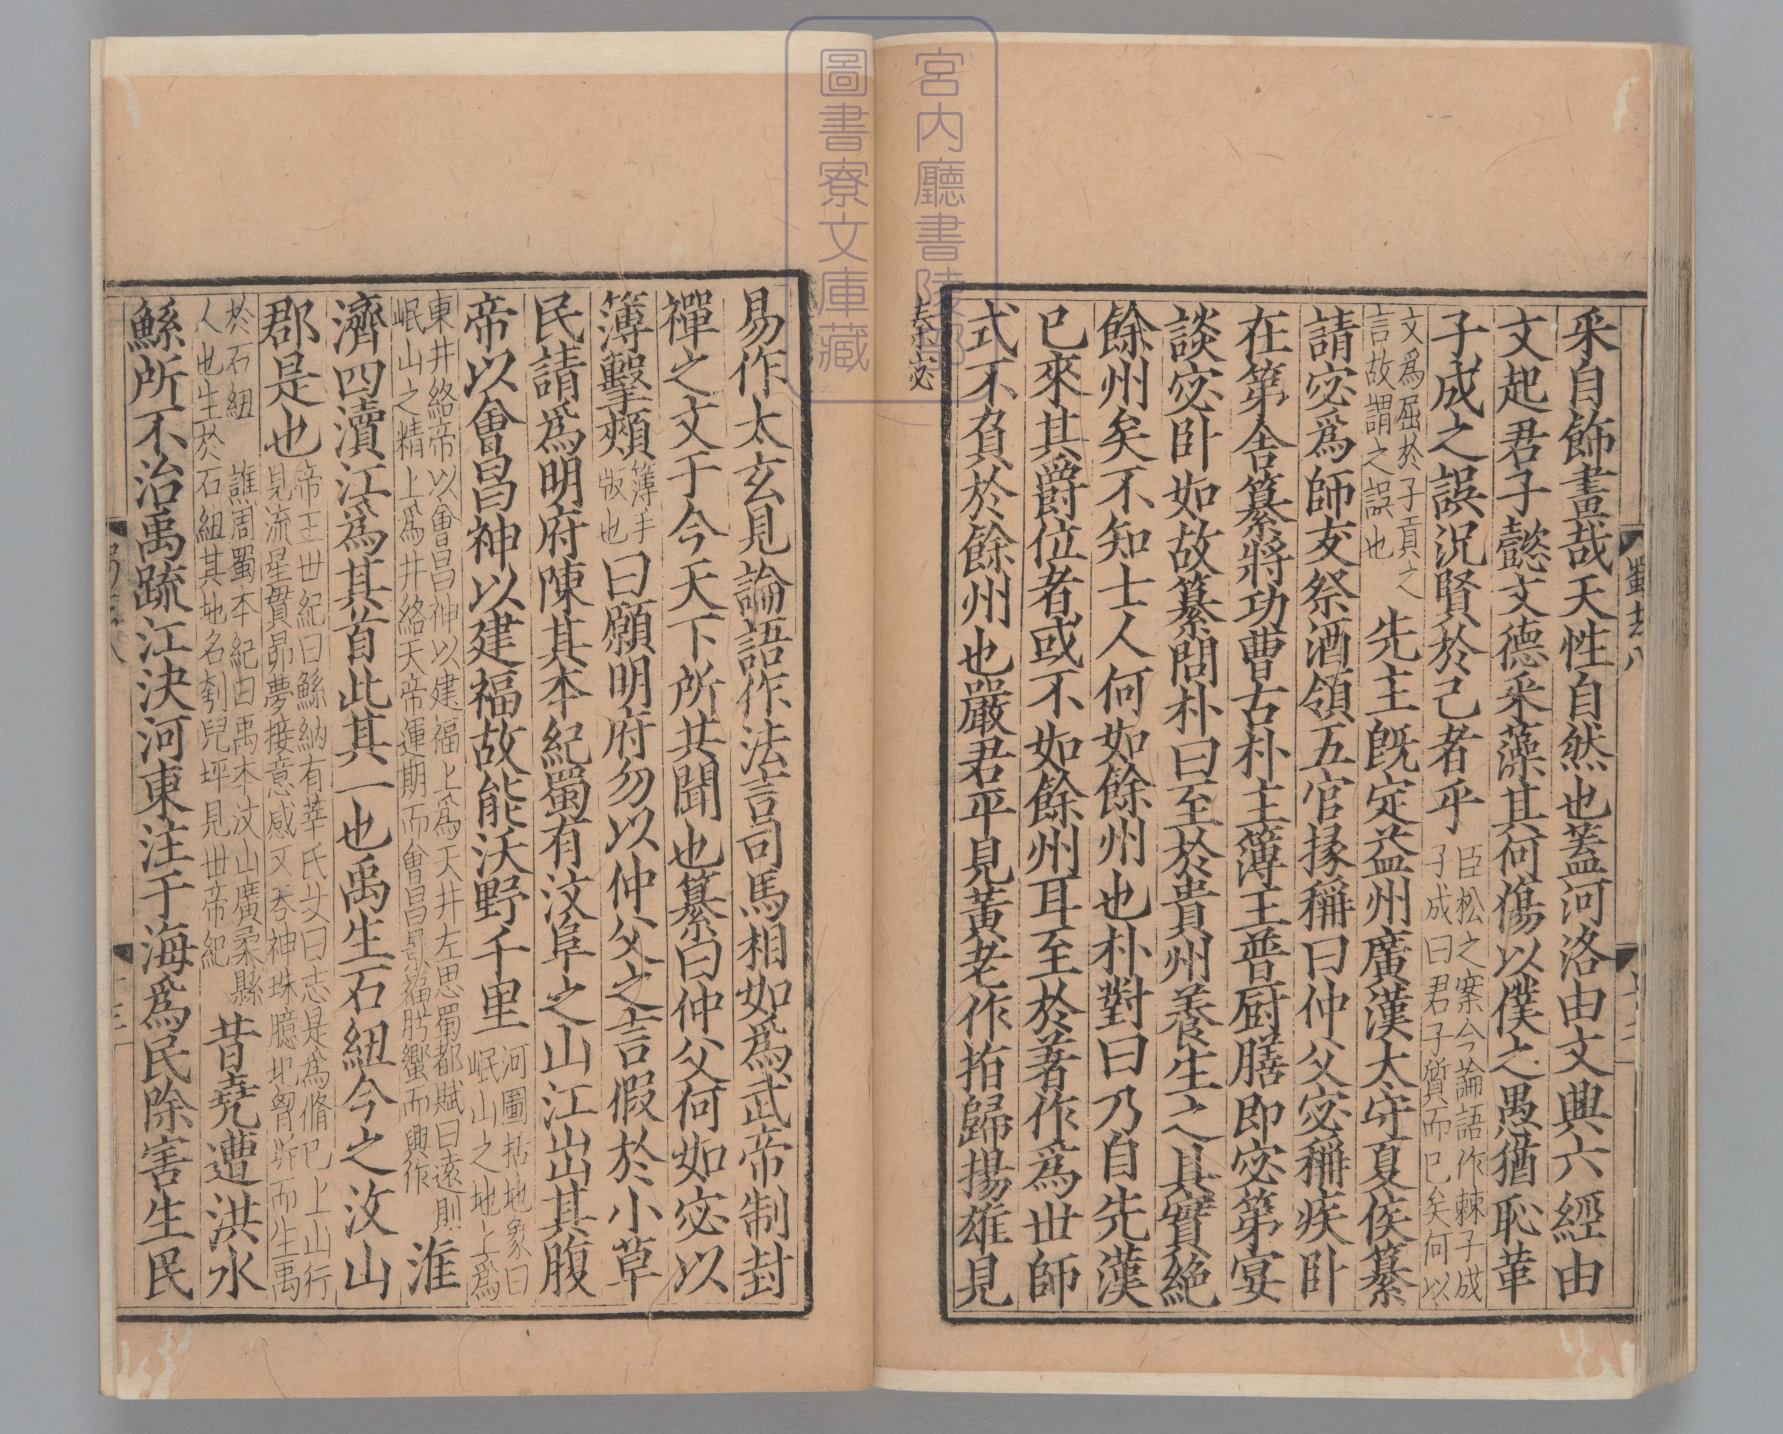 采自飾畫哉天性自然也蓋河洛由文興六經由
文起君子懿文德采藻其何傷以僕之愚猶恥革
子成之誤況賢於己者乎
臣松之案今論語作棘子成
子成曰君子質而已矣何以
文爲屈於子貢之
言故謂之誤也
先主旣定益州廣漢太守夏侯纂
請宓爲師友祭酒領五官掾稱曰仲父宓稱疾卧
在第舍纂將功曹古朴主簿王普厨膳即宓第宴
談宓卧如故纂問朴曰至於貴州養生之具實絶
餘州矣不知士人何如餘州也朴對曰乃自先漢
已來其爵位者或不如餘州耳至於著作爲世師
式不負於餘州也嚴君平見黃老作指歸揚雄見
秦宓
易作太玄見論語作法言司馬相如爲武帝制封
禪之文于今天下所共聞也纂曰仲父何如宓以
簿擊頰
簿手
版也
曰願明府勿以仲父之言假於小草
民請爲明府陳其本紀蜀有汶阜之山江出其腹
帝以會昌神以建福故能沃野千里
河圖括地象曰
岷山之地上爲
東井絡帝以會昌神以建福上爲天井左思蜀都賦曰遠則
岷山之精上爲井絡天帝運期而會昌景福肸蠁而興作
淮
濟四瀆江爲其首此其一也禹生石紐今之汶山
郡是也
帝王世紀曰鯀納有莘氏女曰志是爲脩已上山行
見流星貫昴夢接意感又吞神珠臆圮胷坼而生禹
於石紐
譙周蜀本紀曰禹本汶山廣柔縣
人也生於石紐其地名刳兒坪見世帝紀
昔堯遭洪水
鯀所不治禹疏江決河東注于海爲民除害生民
宮内廳書陵部
圖書寮文庫藏